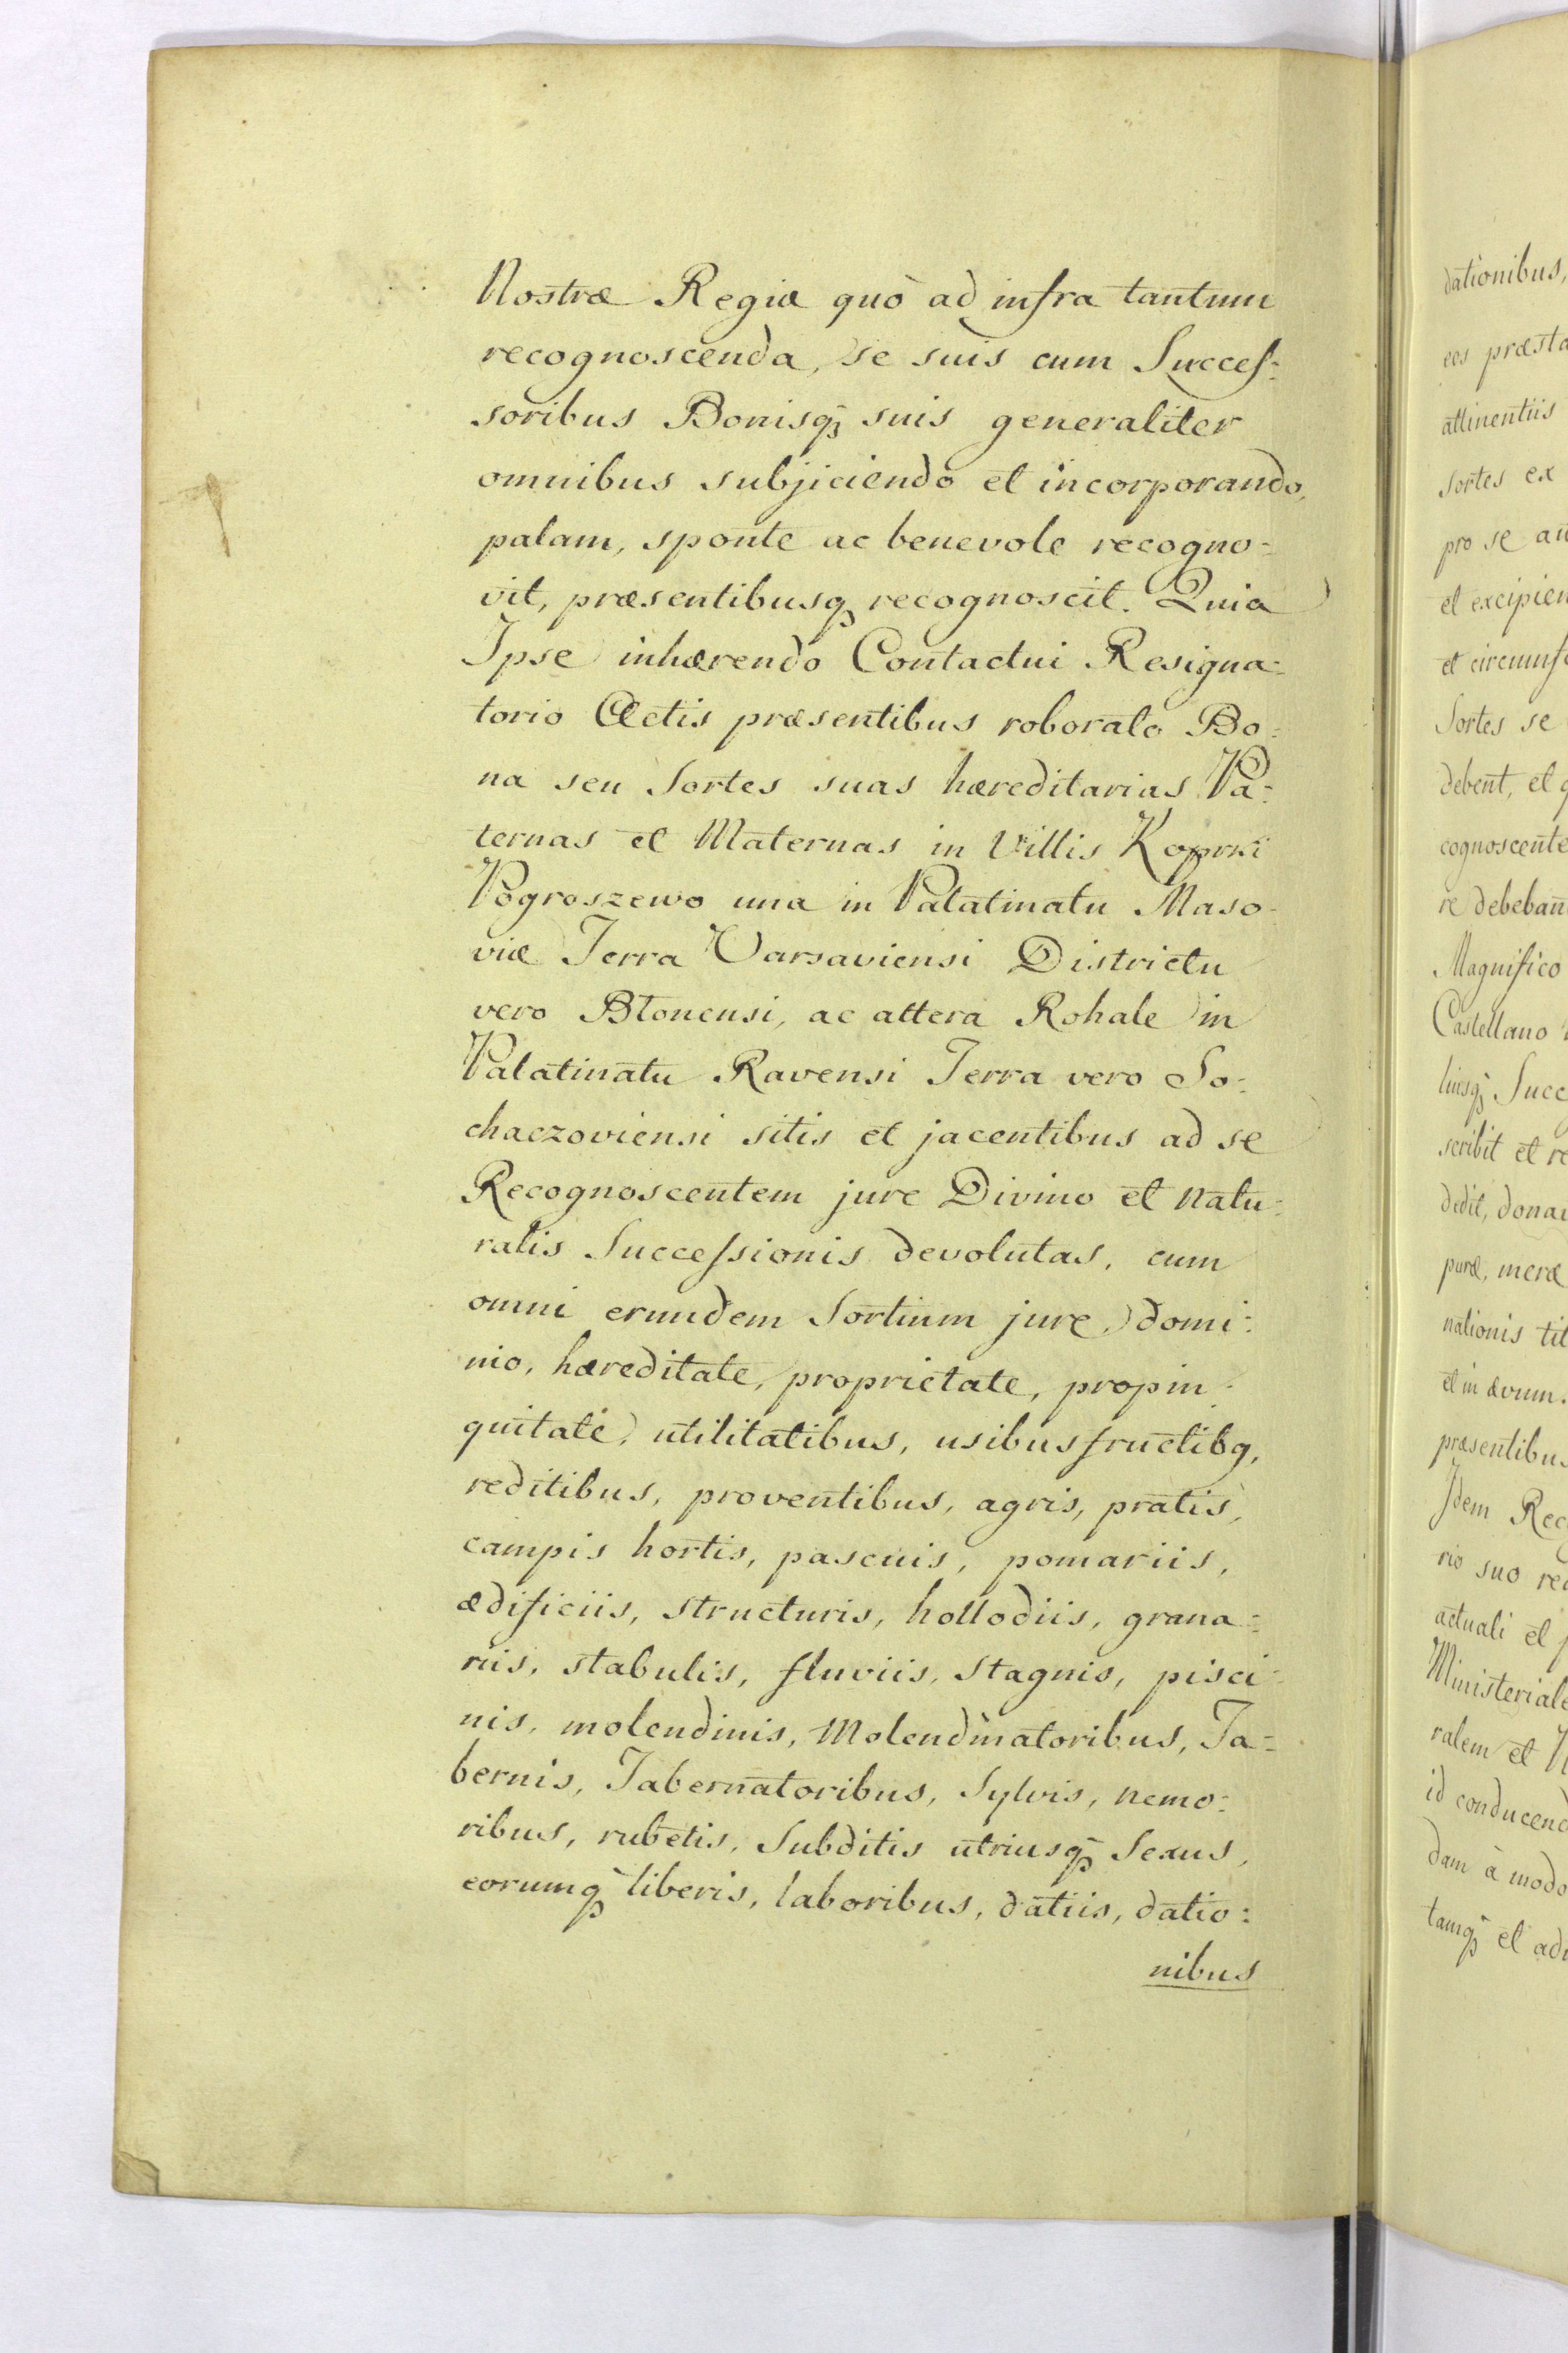 Nostræ Regiæ quò ad infra tantum
recognoscenda, se suis cum Succes:
soribus Bonisq; suis generaliter
omnibus subjiciendo et incorporando,
palam, sponte ac benevole recogno-
vit, præsentibusq; recognoscit. Quia
Ipse inhærendo Contactui Resigna-
torio Actis præsentibus roborato Bo:
na seu Sortes suas hæreditarias Pa:
ternas et Maternas in Villis Koprki
Pogroszewo una in Palatinatu Maso-
viæ Terra Varsaviensi Districtu
vero Błonensi, ac altera Rohale in
Palatinatu Ravensi Terra vero So:
chaczoviensi sitis et jacentibus ad se
Recognoscentem jure Divino et Natu:
ralis Successionis devolutas, cum
omni erundem Sortium jure, domi:
nio, hæreditate, proprietate, propin:
quitate, utilitatibus, usibusfructibq,
reditibus, proventibus, agris, pratis,
campis hortis, pascuis, pomariis,
ædificiis, structuris, hollodiis, grana:
riis, stabulis, fluviis, Stagnis, pisci-
nis, molendinis, Molendinatoribus, Ta:
bernis, Tabernatoribus, Sylvis, nemo:
ribus, rubetis, Subditis utriusq; Sexus,
eorumq; liberis, laboribus, datiis, datio:
nibus
dationibus,
attinentiis
Sortes ex
pro se
Sortes se
debent, et
Magnifico
Castellano
scribit et
puræ, meræ
nationis
et in ævum.
Idem
rio suo
actuali et
ralem et
dam à modo
tamq; et